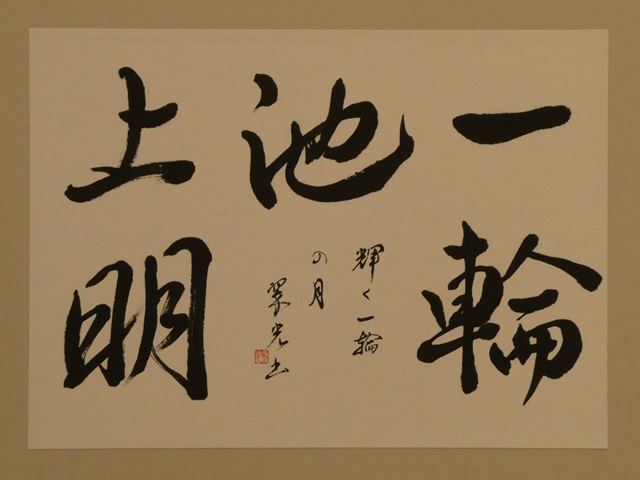 一輪
池
上明
輝く一輪
の月
翠光書